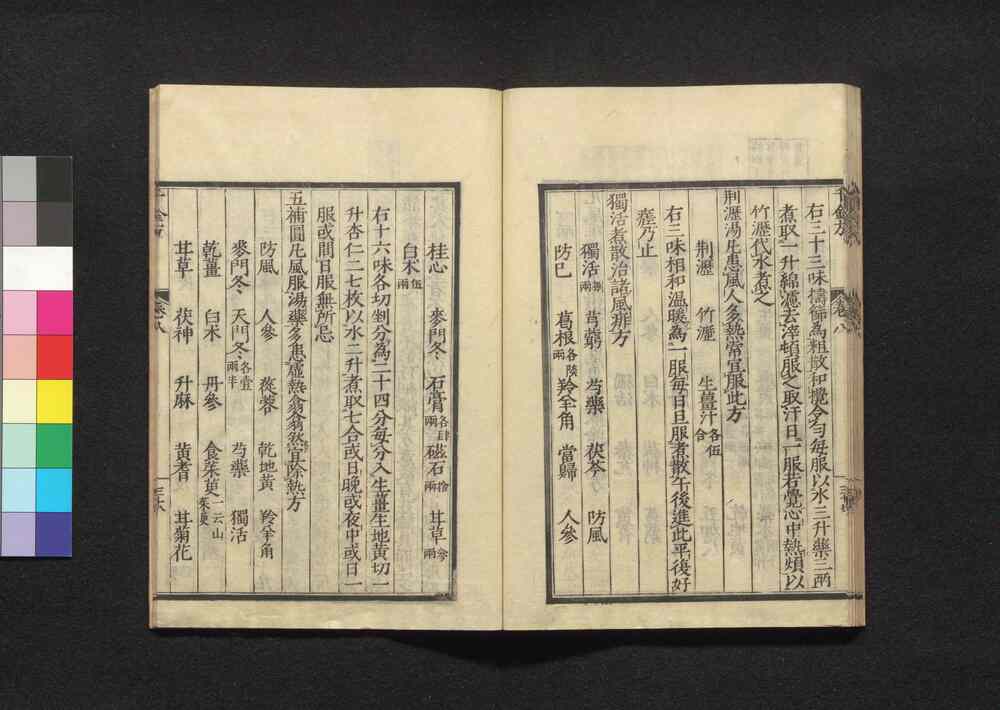 右三十三味擣篩為粗散和攪令勻每服以水三升藥三兩
煮取一升綿濾去滓頓服之取汗日一服若覺心中熱煩以
竹瀝代水煮之
荆瀝湯凡患風人多熱常宜服此方
荆瀝 竹瀝 生薑汁各伍合
右三味相和温暖為一服每日旦服煮散午後進此平復好
瘥乃止
獨活煮散治諸風痱方
獨活捌兩 芎藭 芍藥 茯苓 防風
防已 葛根各陸兩 羚羊角 當歸 人參
桂心 麥門冬 石膏各肆兩 磁石拾兩 甘草參兩
白术伍兩
右十六味各切剉分為二十四分每分入生薑生地黄切一
升杏仁二七枚以水二升煮取七合或日晚或夜中或日一
服或間日服無所忌
五補圓凡風服湯藥多患虛熱翕翕然宜除熱方
防風 人參 蓯蓉 乾地黄 羚羊角
麥門冬 天門冬各壹兩半 芍藥 獨活
乾薑 白术 丹參 食茱萸一云山茱萸
甘草 茯神 升麻 黄耆 甘菊花
千金方
卷八